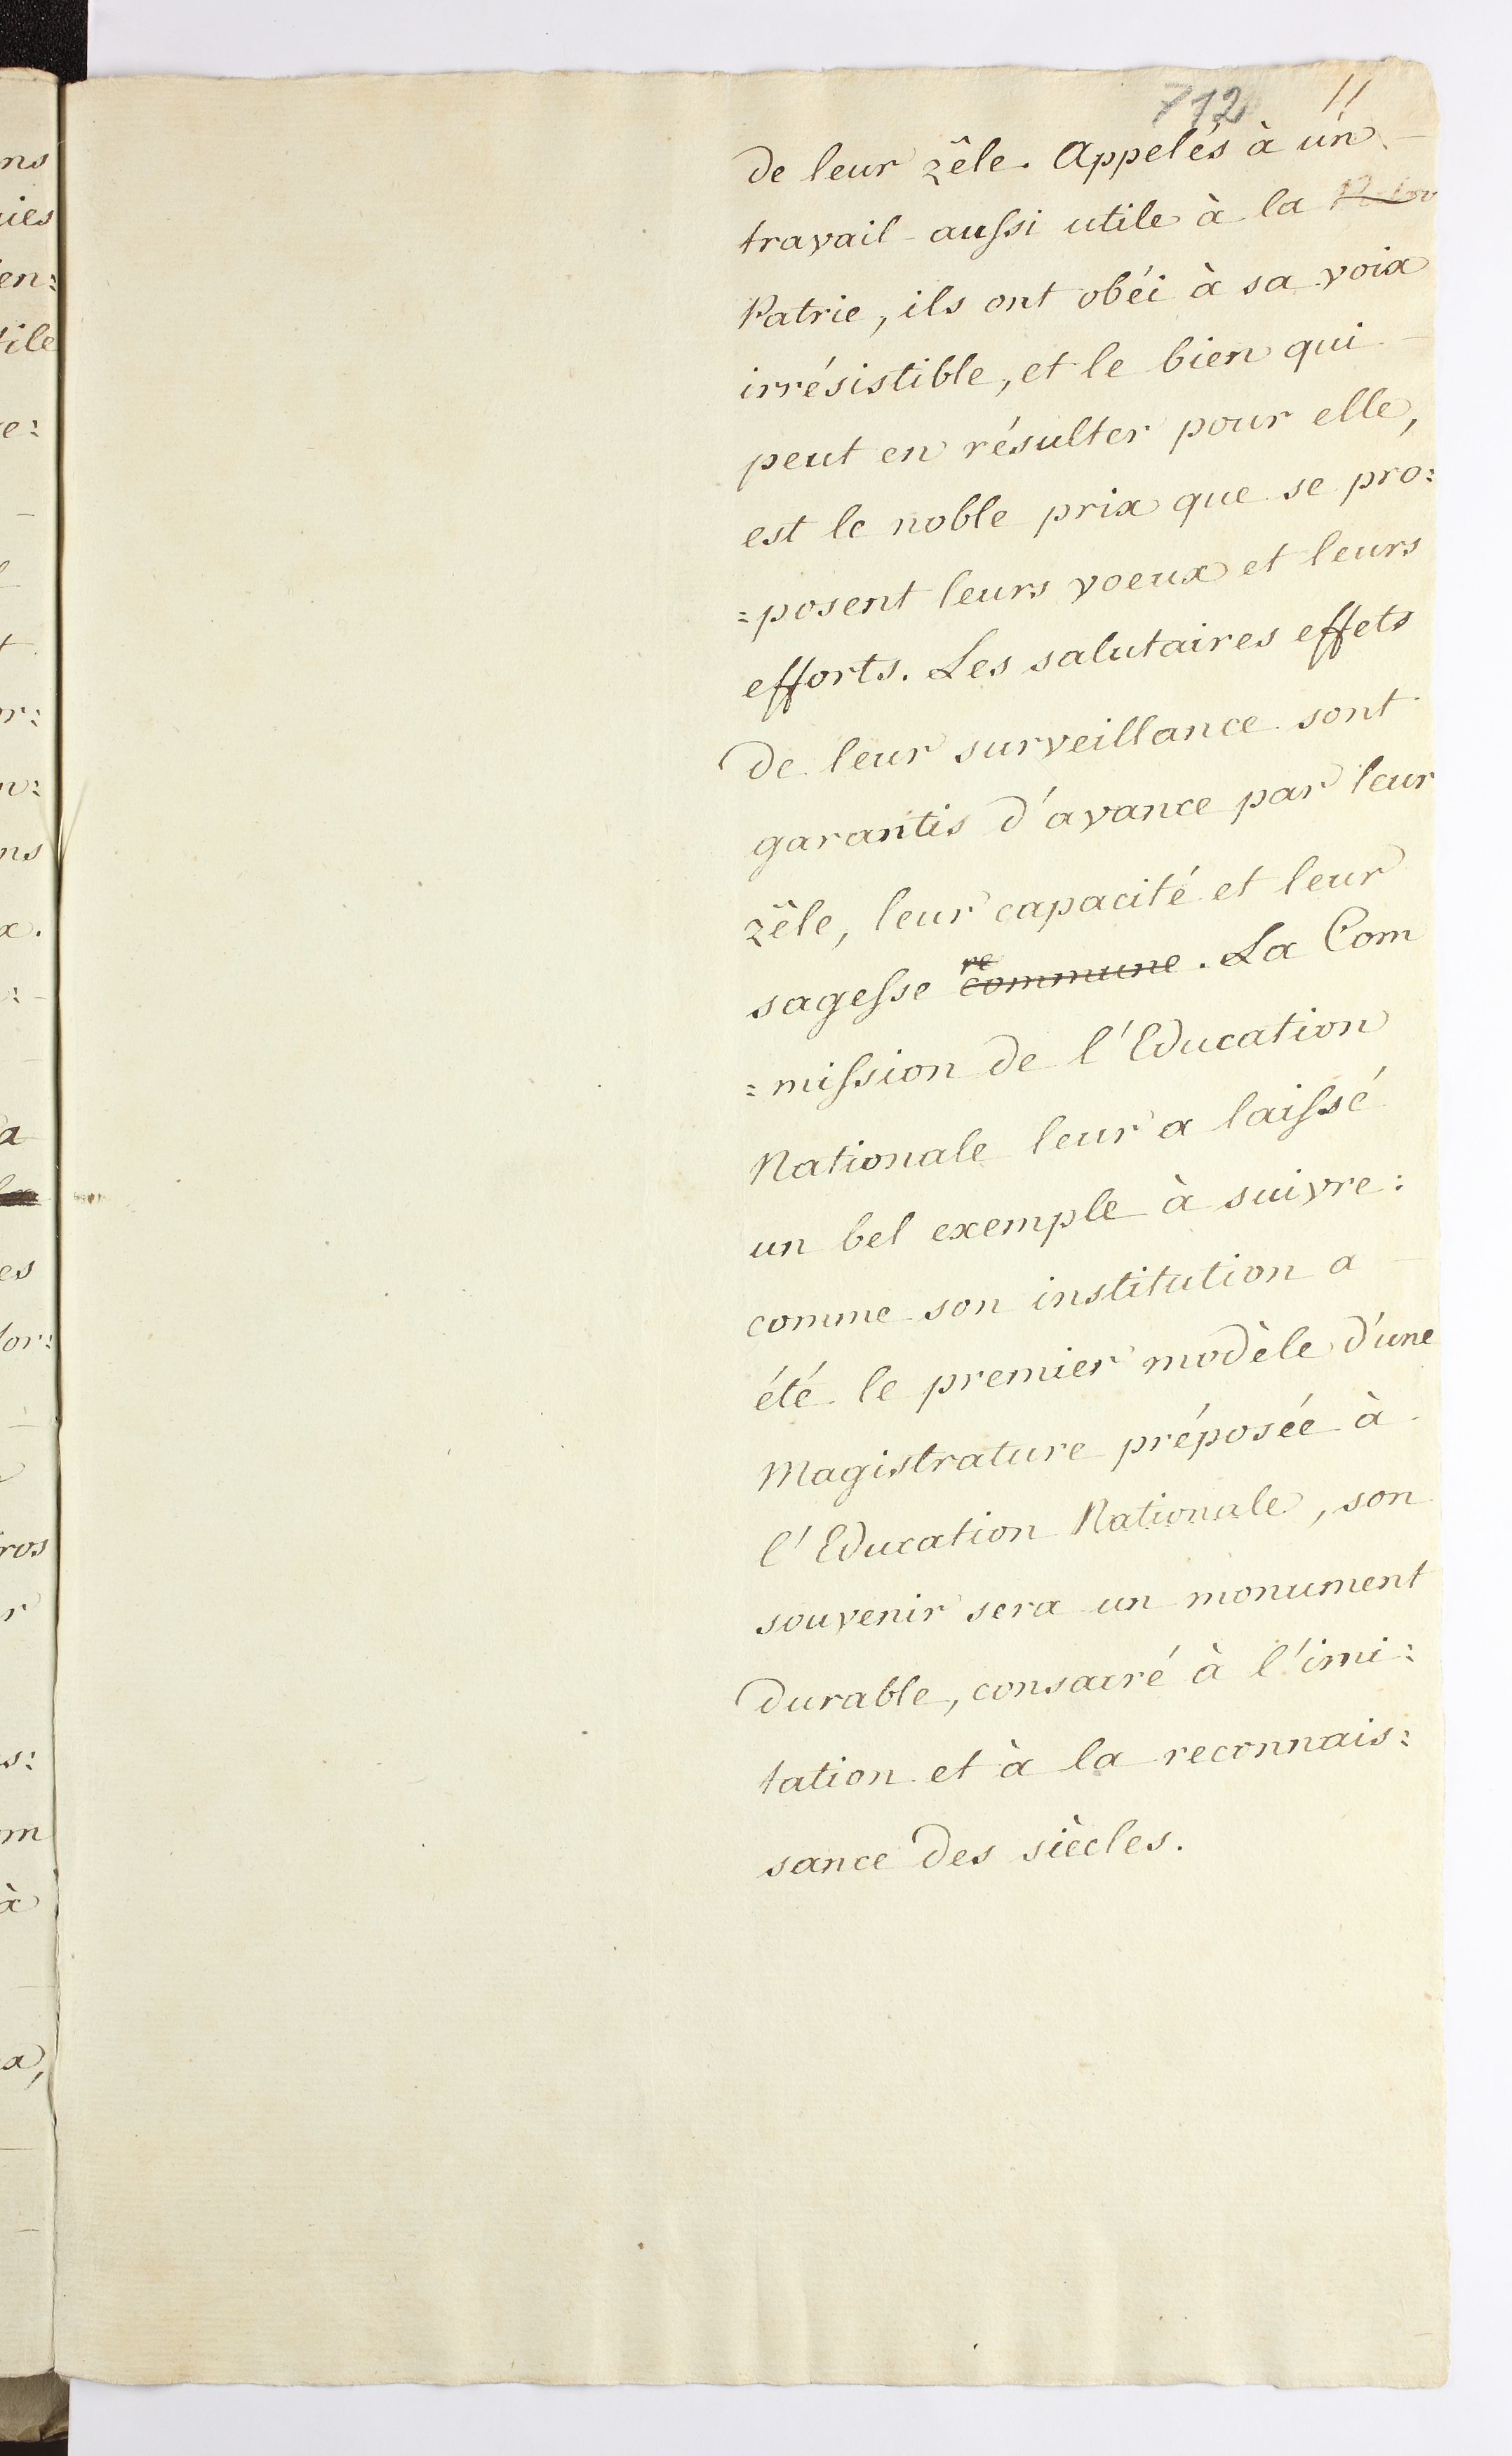 712 11
de leur zêle. Appelés à un
travail aussi utile à la
Patrie, ils ont obéi à sa voix
irrésistible, et le bien qui
peut en résulter pour elle,
est le noble prix que se pro:
=posent leurs voeux et leurs
efforts. Les salutaires effets
de leur surveillance sont
garantis d'avance par leur
zêle, leur capacité et leur
sagesse commune. La Com
=mission de l'Education
Nationale leur a laissé
un bel exemple à suivre:
comme son institution a
été le premier modèle d'une
Magistrature préposée à
l'Education Nationale, son
souvenir sera un monument
durable, consacré à l'imi:
tation et à la reconnais:
sance des siècles.
ns
ies
en:
tile
e:
r:
n:
ns
x.
a
es
or:
ros
r
s:
m
à